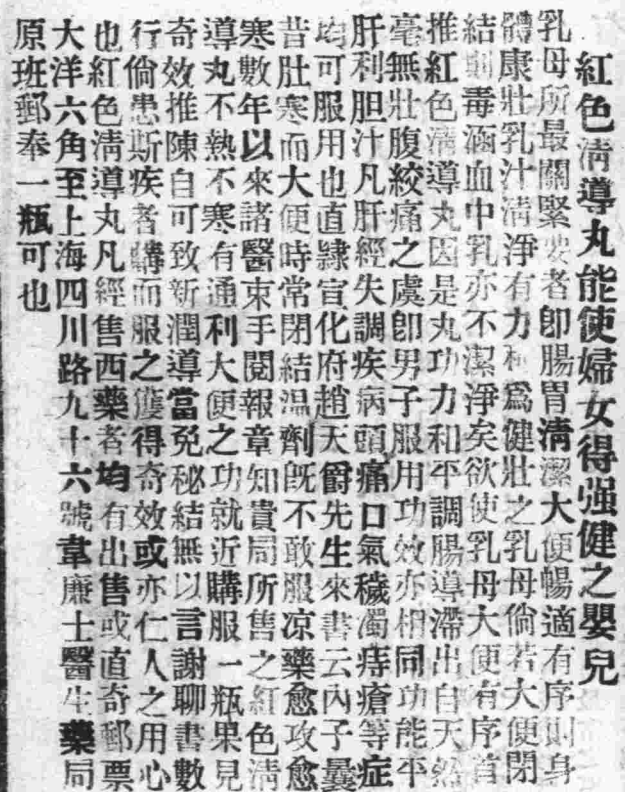 紅色淸導丸能使婦女得强健之嬰兒
乳母所最關緊要者卽腸胃淸潔大便暢適有序則身
體康壯乳汁淸淨有力極爲健壯之乳母倘若大便閉
結則毒涵血中乳亦不潔淨矣欲使乳母大便有序首
推紅色淸導丸因是丸功力和平調腸導滯出自天然
毫無壯腹絞痛之虞卽男子服用功效亦相同功能平
肝利胆汁凡肝經失調疾病頭痛口氣穢濁痔瘡等症
均可服用也直隸宣化府趙天爵先生來書云內子曩
昔肚寒而大便時常閉結温劑旣不敢服凉藥愈攻愈
寒數年以來諸醫束手閱報章知貴局所售之紅色淸
導丸不熱不寒有通利大便之功就近購服一瓶果見
奇效推陳自可致新潤導當免秘結無以言謝聊書數
行倘患斯疾者購而服之獲得奇效或亦仁人之用心
也紅色淸導丸凡經售西藥者均有出售或直奇郵票
大洋六角至上海四川路九十六號韋廉士醫生藥局
原班郵奉一瓶可也